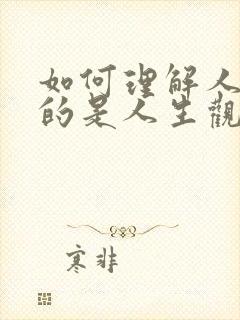 如何理解人
的是人生觀
寒非